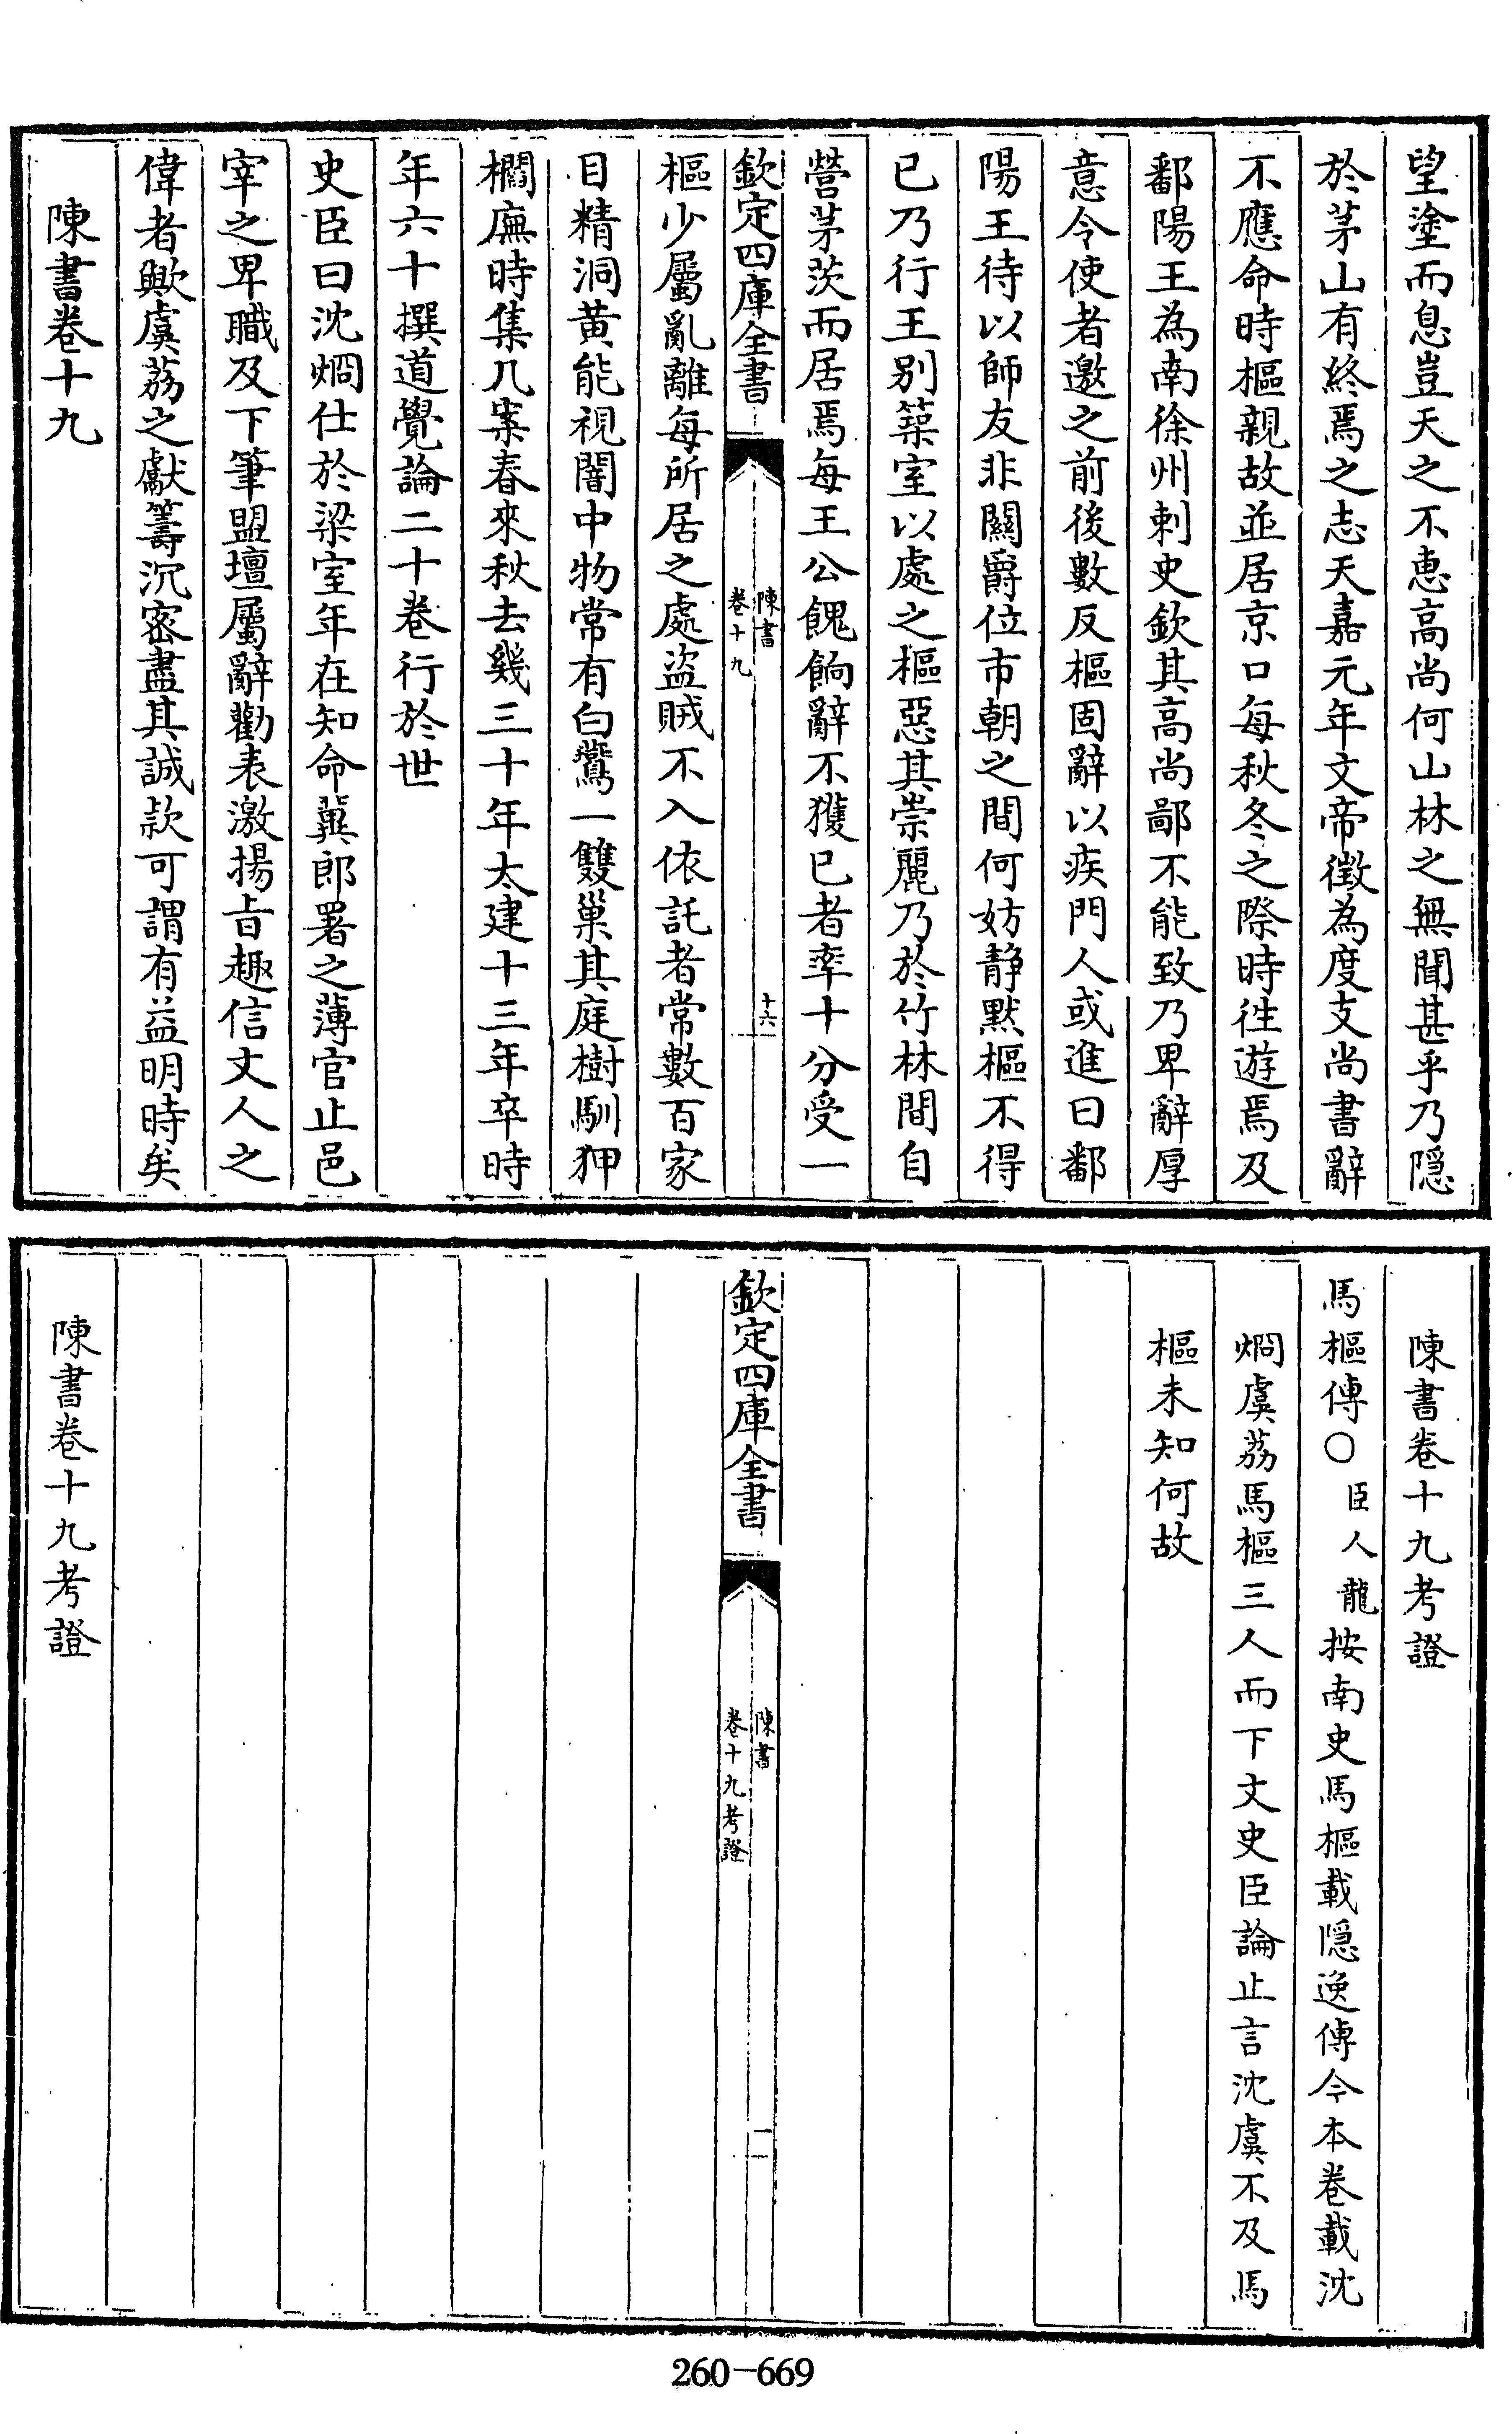 望塗而息豈天之不恵高尚何山林之無聞甚乎乃隠
於茅山有終焉之志天嘉元年文帝徴為度支尚書辭
不應命時樞親故並居京口每秋冬之際時徃遊焉及
鄱陽王為南徐州刺史欽其高尚鄙不能致乃卑辭厚
意令使者邀之前後數反樞固辭以疾門人或進曰鄱
陽王待以師友非關爵位市朝之間何妨静黙樞不得
已乃行王別築室以處之樞惡其崇麗乃於竹林間自
營茅茨而居焉每王公餽餉辭不獲已者率十分受一
欽定四庫全書
陳書
卷十九
十六
樞少屬亂離每所居之處盗賊不入依託者常數百家
目精洞黄能視闇中物常有白鷰一雙巢其庭樹馴狎
櫩廡時集几案春來秋去幾三十年太建十三年卒時
年六十撰道覺論二十卷行於世
史臣曰沈烱仕於梁室年在知命冀郎署之薄官止邑
宰之卑職及下筆盟壇屬辭勸表激揚㫖趣信文人之
偉者歟虞荔之獻籌沉密盡其誠款可謂有益明時矣
陳書卷十九
陳書卷十九考證
馬樞傳○臣人龍按南史馬樞載隠逸傳今本卷載沈
烱虞荔馬樞三人而下文史臣論止言沈虞不及馬
樞未知何故
欽定四庫全書
陳書
卷十九考證
一
陳書卷十九考證
260-669